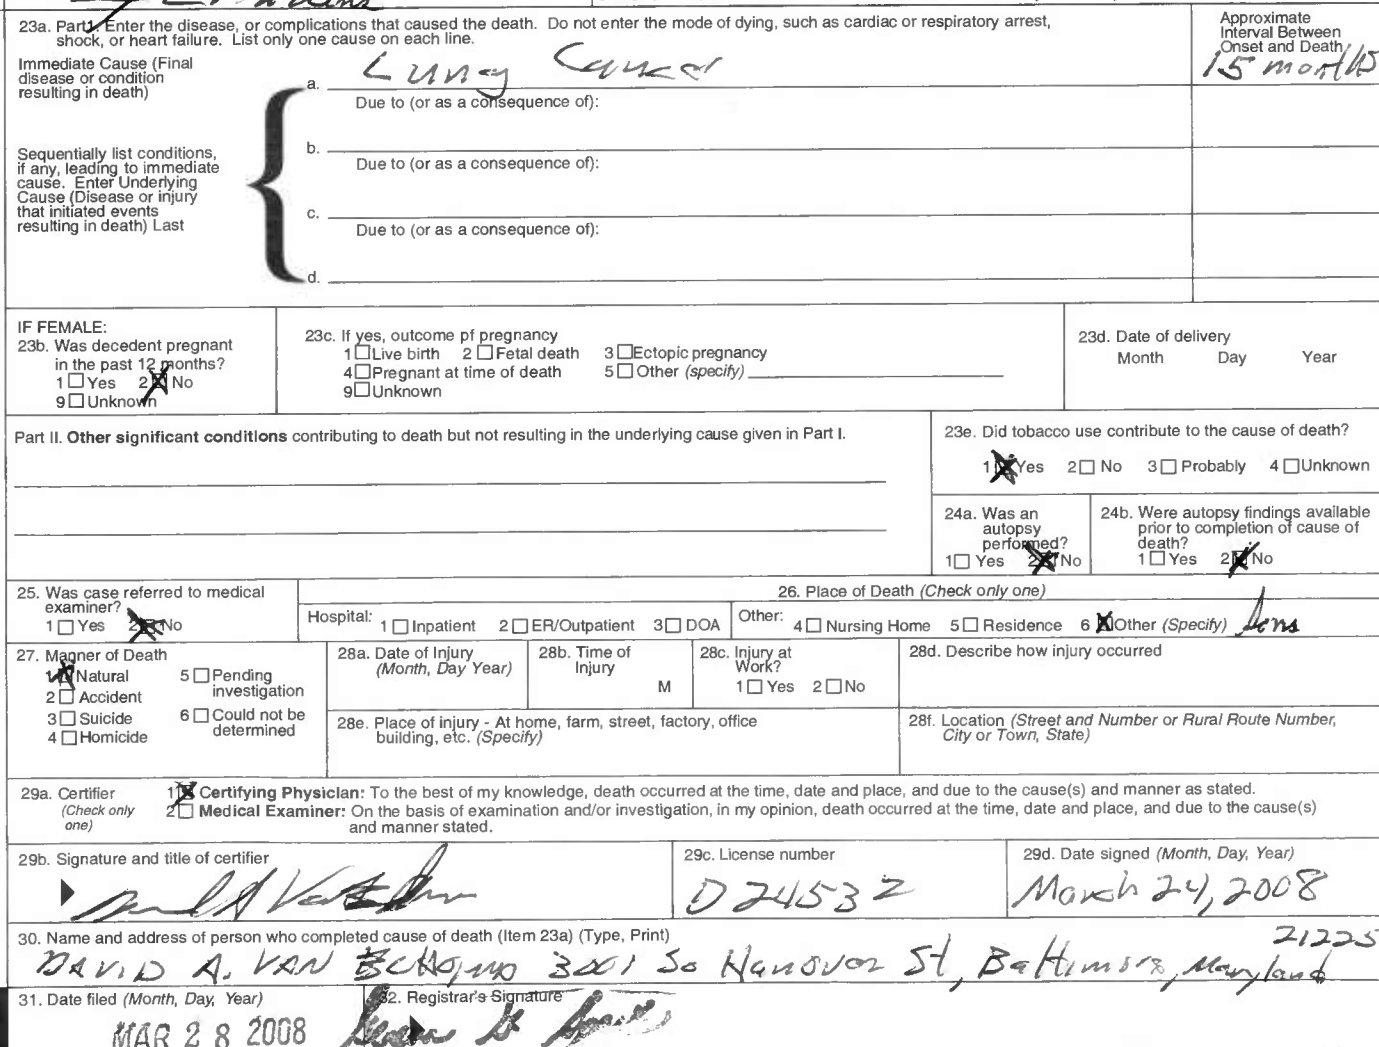 23a. Part I. Enter the disease, or complications that caused the death. Do not enter the mode of dying, such as cardiac or respiratory arrest,
shock, or heart failure. List only one cause on each line.
Approximate
Interval Between
Onset and Death
Immediate Cause (Final
disease or condition
resulting in death)
a. Lung Cancer
15 months
Due to (or as a consequence of):
Sequentially list conditions,
if any, leading to immediate
cause. Enter Underlying
Cause (Disease or injury
that initiated events
resulting in death) Last
b.
Due to (or as a consequence of):
c.
Due to (or as a consequence of):
d.
IF FEMALE:
23b. Was decedent pregnant
in the past 12 months?
1 ☐ Yes 2 ☒ No
9 ☐ Unknown
23c. If yes, outcome pf pregnancy
1 ☐ Live birth 2 ☐ Fetal death 3 ☐ Ectopic pregnancy
4 ☐ Pregnant at time of death 5 ☐ Other (specify)
9 ☐ Unknown
23d. Date of delivery
Month Day Year
Part II. Other significant conditions contributing to death but not resulting in the underlying cause given in Part I.
23e. Did tobacco use contribute to the cause of death?
1 ☒ Yes 2 ☐ No 3 ☐ Probably 4 ☐ Unknown
24a. Was an
autopsy
performed?
1 ☐ Yes 2 ☒ No
24b. Were autopsy findings available
prior to completion of cause of
death?
1 ☐ Yes 2 ☒ No
25. Was case referred to medical
examiner?
1 ☐ Yes 2 ☒ No
26. Place of Death (Check only one)
Hospital: 1 ☐ Inpatient 2 ☐ ER/Outpatient 3 ☐ DOA Other: 4 ☐ Nursing Home 5 ☐ Residence 6 ☒ Other (Specify)
27. Manner of Death
1 ☒ Natural 5 ☐ Pending
investigation
2 ☐ Accident
3 ☐ Suicide 6 ☐ Could not be
determined
4 ☐ Homicide
28a. Date of Injury
(Month, Day Year)
28b. Time of
Injury
M
28c. Injury at
Work?
1 ☐ Yes 2 ☐ No
28d. Describe how injury occurred
28e. Place of injury - At home, farm, street, factory, office
building, etc. (Specify)
28f. Location (Street and Number or Rural Route Number,
City or Town, State)
29a. Certifier
(Check only
one)
1 ☒ Certifying Physician: To the best of my knowledge, death occurred at the time, date and place, and due to the cause(s) and manner as stated.
2 ☐ Medical Examiner: On the basis of examination and/or investigation, in my opinion, death occurred at the time, date and place, and due to the cause(s)
and manner stated.
29b. Signature and title of certifier
29c. License number
D24532
29d. Date signed (Month, Day, Year)
March 24, 2008
30. Name and address of person who completed cause of death (Item 23a) (Type, Print)
21225
DAVID A. VAN 3001 So Hanover St, Baltimore, Maryland
31. Date filed (Month, Day, Year)
MAR 28 2008
32. Registrar's Signature